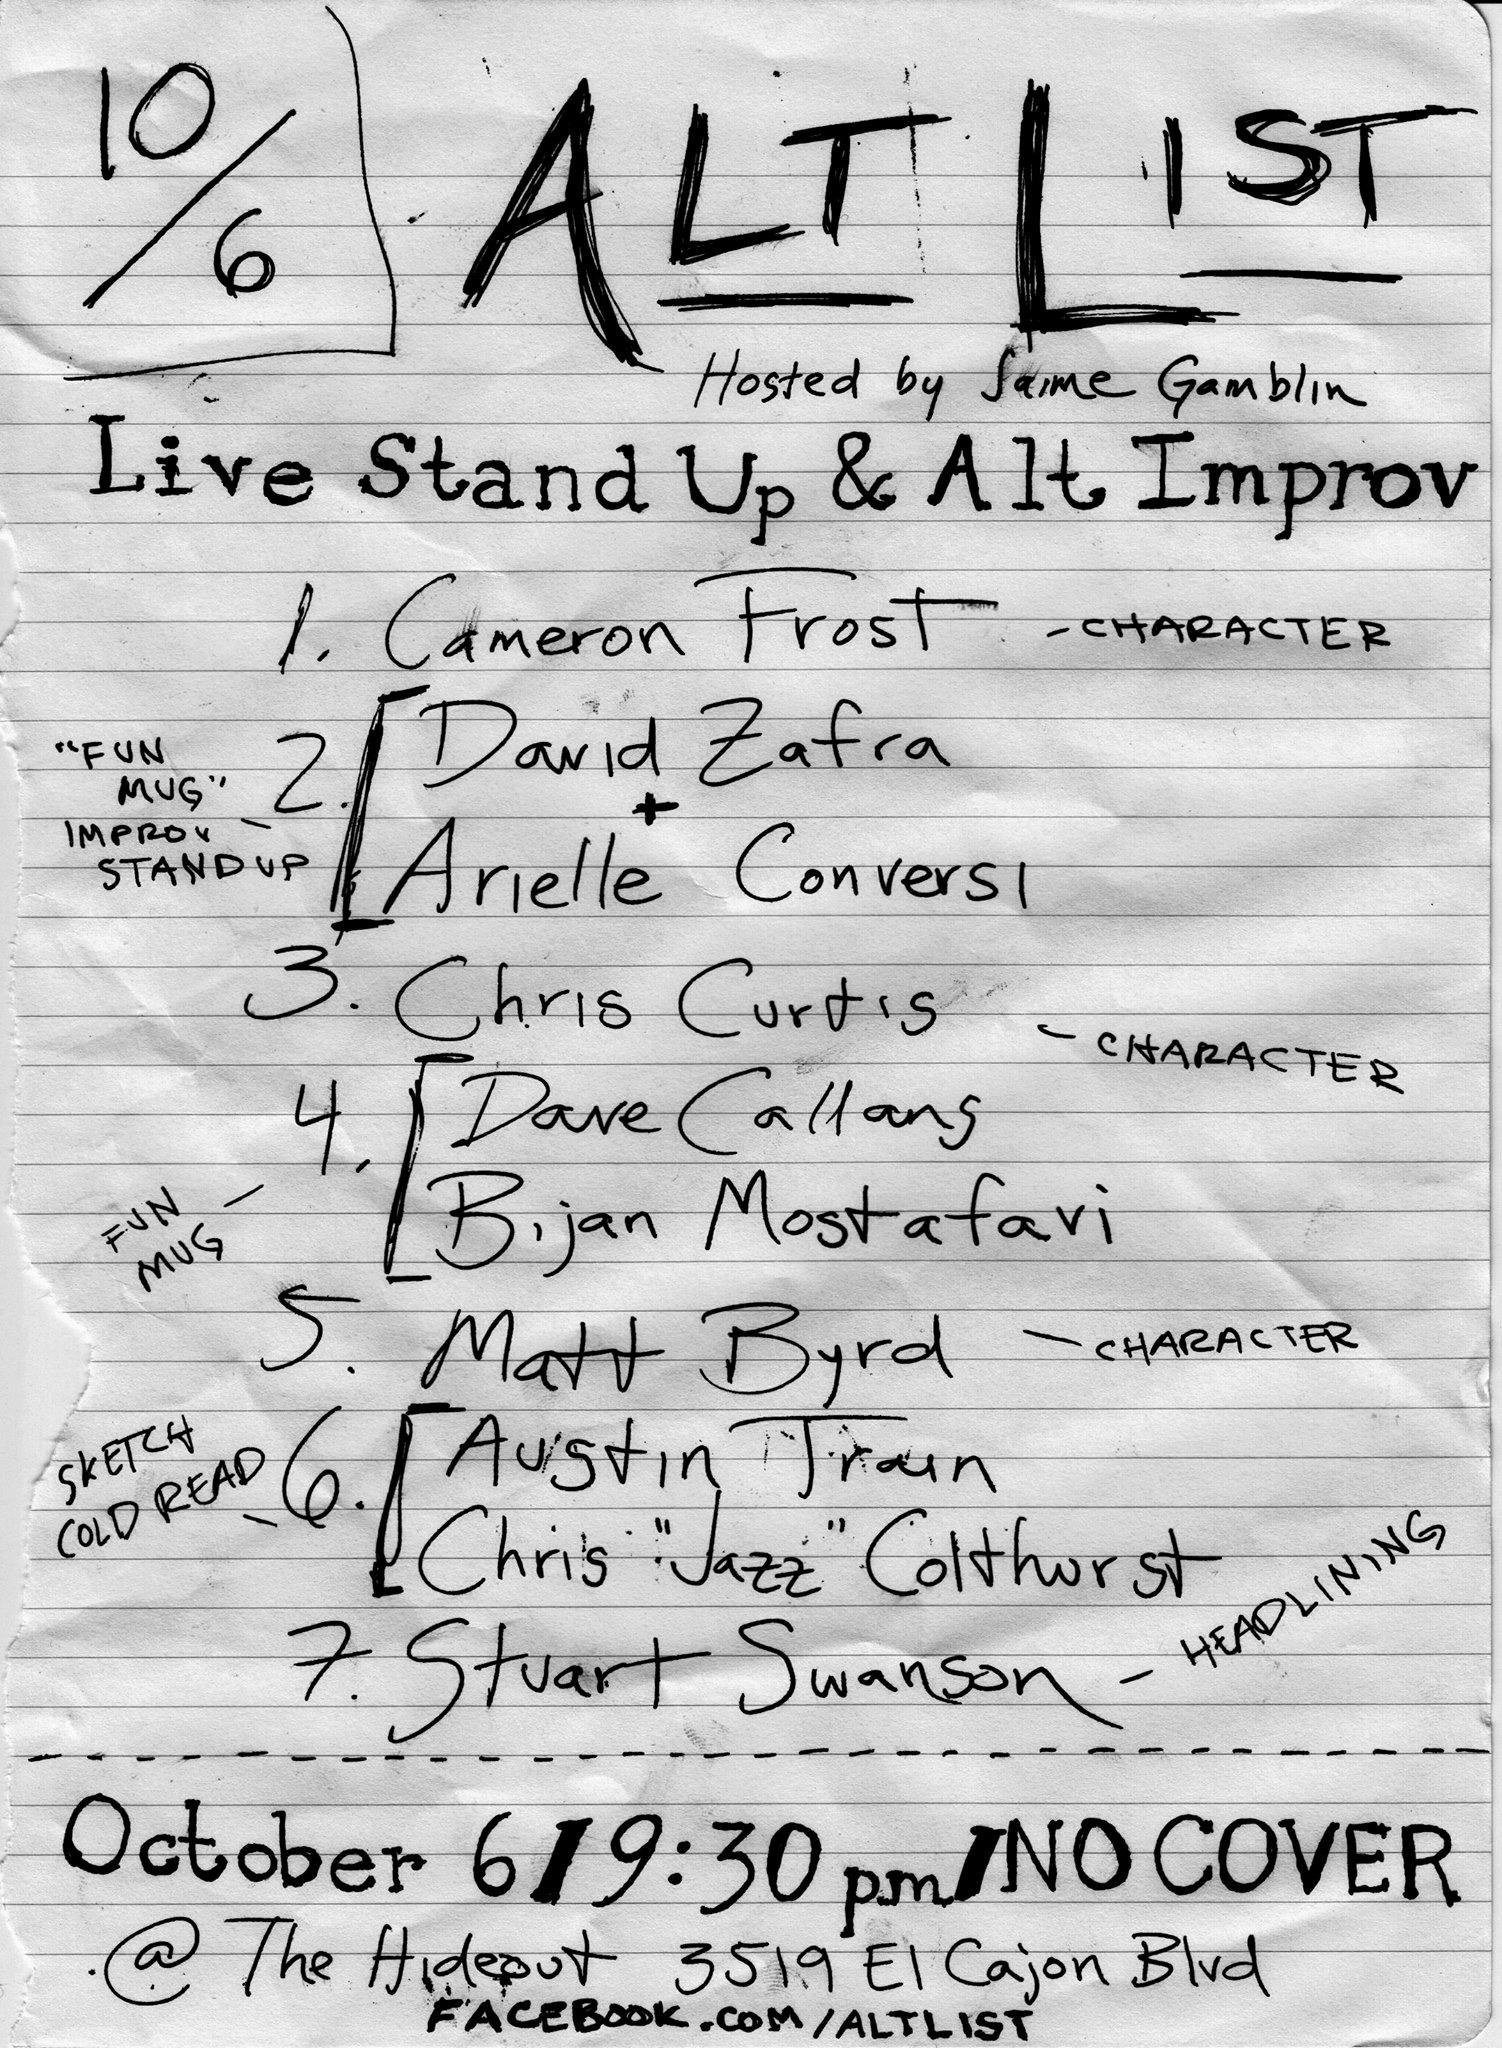 10/6
ALT LIST
Hosted by Jaime Gamblin
Live Stand Up & Alt Improv
1. Cameron Frost - CHARACTER
"FUN MUG" IMPROV STANDUP - 2. David Zafra
+
Arielle Conversi
3. Chris Curtis - CHARACTER
FUN MUG - 4. Dave Callans
Bijan Mostafavi
5. Matt Byrd - CHARACTER
SKETCH COLD READ - 6. Austin Train
Chris "Jazz" Colthurst
7. Stuart Swanson - HEADLINING
October 6 / 9:30 pm / NO COVER
@ The Hideout 3519 El Cajon Blvd
FACEBOOK.COM/ALTLIST